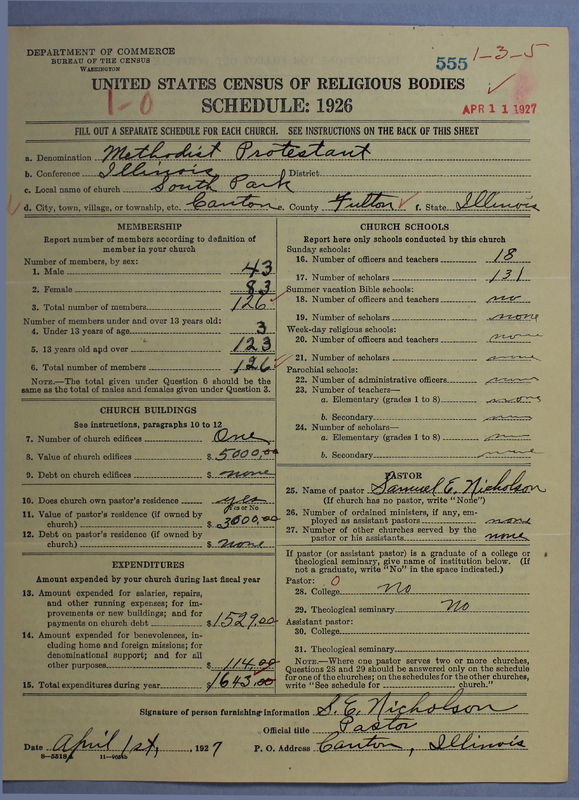 DEPARTMENT OF COMMERCE
BUREAU OF THE CENSUS
WASHINGTON
555 1-3-5
UNITED STATES CENSUS OF RELIGIOUS BODIES
1-0
SCHEDULE: 1926
APR 11 1927
FILL OUT A SEPARATE SCHEDULE FOR EACH CHURCH. SEE INSTRUCTIONS ON THE BACK OF THIS SHEET
a. Denomination Methodist Protestant
b. Conference Illinois District
c. Local name of church South Park
d. City, town, village, or township, etc. Canton e. County Fulton f. State Illinois
MEMBERSHIP
Report number of members according to definition of
member in your church
Number of members, by sex:
1. Male 43
2. Female 83
3. Total number of members 126
Number of members under and over 13 years old:
4. Under 13 years of age 3
5. 13 years old and over 123
6. Total number of members 126
NOTE.—The total given under Question 6 should be the
same as the total of males and females given under Question 3.
CHURCH BUILDINGS
See instructions, paragraphs 10 to 12
7. Number of church edifices One
8. Value of church edifices $5000,00
9. Debt on church edifices $ none
10. Does church own pastor's residence yes
Yes or No
11. Value of pastor's residence (if owned by
church) $ 3000,00
12. Debt on pastor's residence (if owned by
church) $ none
EXPENDITURES
Amount expended by your church during last fiscal year
13. Amount expended for salaries, repairs,
and other running expenses; for im-
provements or new buildings; and for
payments on church debt $1529.00
14. Amount expended for benevolences, in-
cluding home and foreign missions; for
denominational support; and for all
other purposes $ 114.00
15. Total expenditures during year $1643.00
CHURCH SCHOOLS
Report here only schools conducted by this church
Sunday schools:
16. Number of officers and teachers 18
17. Number of scholars 131
Summer vacation Bible schools:
18. Number of officers and teachers no
19. Number of scholars none
Week-day religious schools:
20. Number of officers and teachers none
21. Number of scholars none
Parochial schools:
22. Number of administrative officers none
23. Number of teachers—
a. Elementary (grades 1 to 8) none
b. Secondary
24. Number of scholars—
a. Elementary (grades 1 to 8)
b. Secondary none
PASTOR
25. Name of pastor Samuel E. Nicholson
(If church has no pastor, write "None")
26. Number of ordained ministers, if any, em-
ployed as assistant pastors none
27. Number of other churches served by the
pastor or his assistants none
If pastor (or assistant pastor) is a graduate of a college or
theological seminary, give name of institution below. (If
not a graduate, write "No" in the space indicated.)
Pastor: 0
28. College No
29. Theological seminary No
Assistant pastor:
30. College
31. Theological seminary
NOTE.—Where one pastor serves two or more churches,
Questions 28 and 29 should be answered only on the schedule
for one of the churches; on the schedules for the other churches,
write "See schedule for church."
Signature of person furnishing information S. E. Nicholson
Official title Pastor
Date April 1st, , 1927 P. O. Address Canton, Illinois